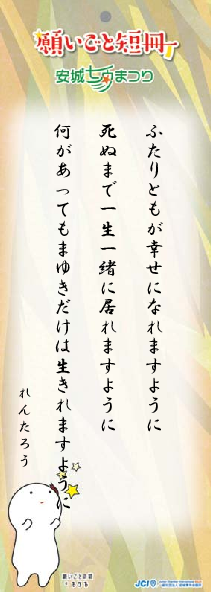 願いごと短冊
安城七夕まつり
ふたりともが幸せになれますように
死ぬまで一生一緒に居れますように
何があってもまゆきだけは生きれますように
れんたろう
願いごと短冊
JCI